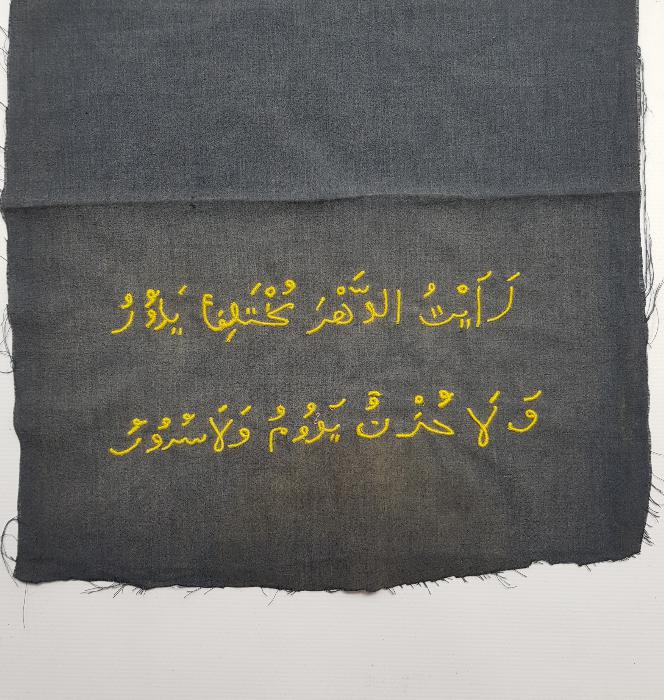 رَاَيْتُ الدَّهْرَ مُخْتَلِفاً يَدُوْرُ
وَلَا حُزْنٌ يَدُوُمُ وَلَاسُرُوُرُ